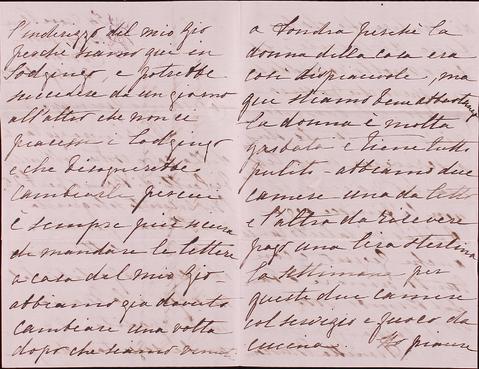 l'indirizzo del mio Gio
perchè siamo qui in
Lodgings, e potrebbe
succedere da un giorno
all'altro che non ci
piacessi i Lodgings
e che bisognerebbe
cambiarli perciò
è sempre più sicura
di mandare le lettere
a casa del mio Gio -
abbiamo già dovuto
cambiare una volta
dopo che siamo venuti
a Londra perchè la
donna della casa era
così dispiacevole, ma
qui stiamo bene abbastanza
la donna è molta
garbata e tiene tutto
pulito - abbiamo due
camere una da letto
e l'altra da ricevere
pago una lira sterlina
la settimana per
queste due camere
col servigio e fuoco da
cucina. Ho piacere